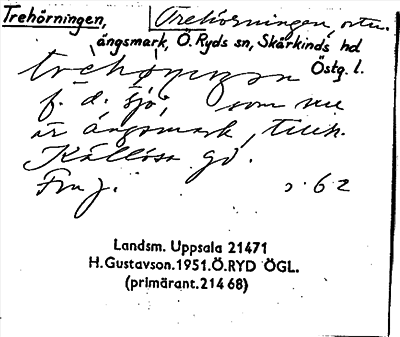 Trehörningen, Trehörningen,
ängsmark, Ö. Ryds sn, Skärkinds hd
Östg. l.
f. d. sjö, som nu
är ängsmark, tillh.
Källösa gd.
s. 62
Landsm. Uppsala 21471
H.Gustavson.1951.Ö.RYD ÖGL.
(primärant.214 68)